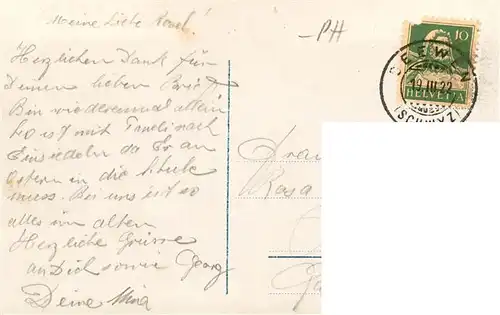 Meine Liebe Rosel!
Herzlichen Dank für
Deinen lieben Brief
Bin wiedereinmal allein
ist mit Trudi nach
Einsiedeln da Er an
Ostern in die
muss. Bei uns ist so
alles im alten
Herzliche Grüsse
an Dich sowie Georg
Deine Mina
-PH
10
HELVETIA
SEEWEN
19.III.22
(SCHWYZ)
Frau
Rosa